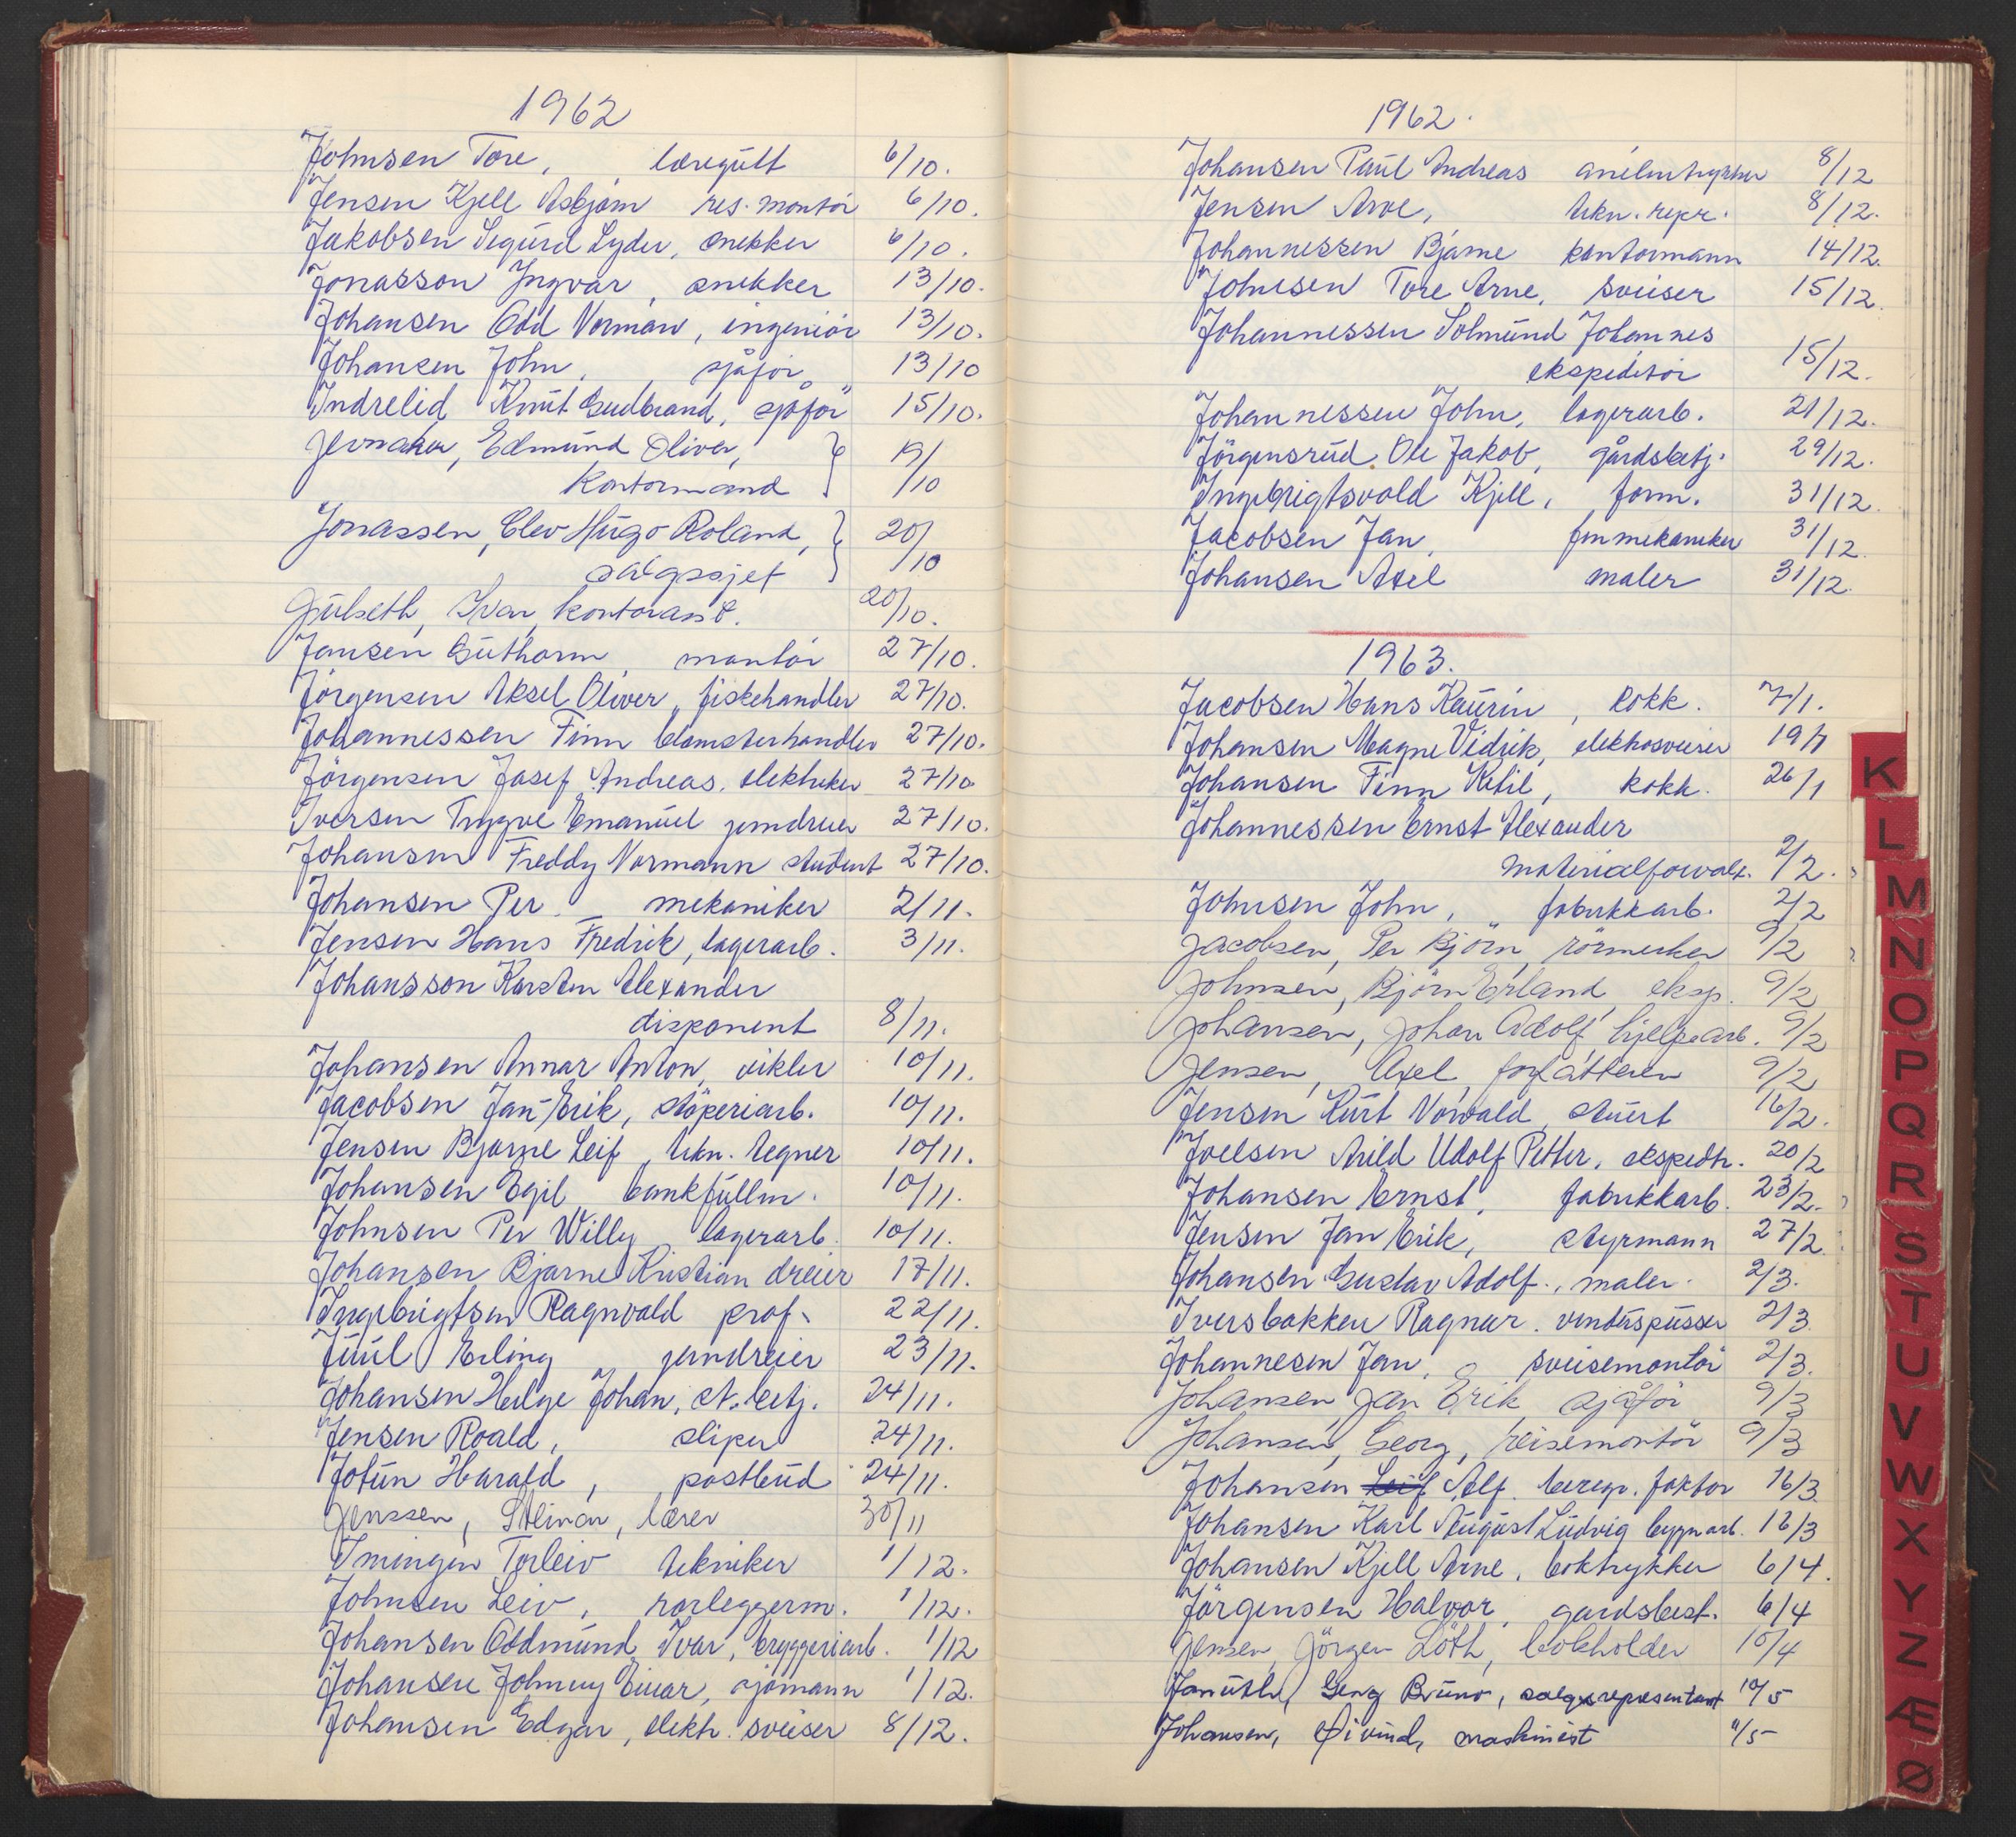 1962
Johnsen Tore, læregutt 6/10.
Jensen Kjell Asbjørn res. montör 6/10.
Jakobsen Sigurd Lyder, snekker 6/10.
Jonasson Ingvar, snekker 13/10.
Johansen Odd Norman, ingeniör 13/10.
Johansen John, sjåför 13/10
Indrelid Knut Gudbrand, sjåför 15/10.
Jevnaker, Edmund Oliver, 19/
Kontormand /10
Jonassen, Clev Hugo Roland, 20/
salgssjef /10
Julseth, Ivar, kontorass. 20/10.
Jansen Guthorm, montör 27/10.
Jörgensen Aksel Oliver, fiskehandler 27/10.
Johannessen Finn blomsterhandler 27/10.
Jörgensen Josef Andreas, elektriker 27/10.
Iversen Trygve Emanuel jerndreier 27/10.
Johansen Freddy Normann student 27/10.
Johansen Per mekaniker 2/11.
Jensen Hans Fredrik, lagerarb. 3/11.
Johansson Karsten Alexander
disponent 8/11.
Johansen Annar Anton, vikler 10/11.
Jacobsen Jan-Erik, stöperiarb. 10/11.
Jensen Bjarne Leif, tekn. tegner 10/11.
Johansen Egil bankfullm. 10/11.
Johnsen Per Willy lagerarb. 10/11.
Johansen Bjarne Kristian dreier 17/11.
Ingebrigtsen Ragnvald prof. 22/11.
Juul Erling jerndreier 23/11.
Johansen Helge Johan, st. betj. 24/11.
Jensen Roald, sliper 24/11.
Jotun Harald, postbud 24/11.
Jenssen, Steinar, lærer 30/11
Imingen Torleiv tekniker 1/12.
Johnsen Leiv, rørleggerm. 1/12.
Johansen Oddmund Ivar, bryggeriarb. 1/12
Johansen Johnny Einar, sjömann 1/12.
Johansen Edgar, elektr. sveiser 8/12.
1962.
Johansen Paul Andreas anilintrykker 8/12
Jensen Arve, tekn. repr. 8/12.
Johannessen Bjarne kontormann 14/12.
Johnsen Tore Arne, sveiser 15/12.
Johannessen Solmund Johannes
ekspeditör 15/12.
Johannessen John, lagerarb. 21/12.
Jörgensrud Ole Jakob, gårdsbetj. 29/12.
Ingebrigtsvold Kjell, form. 31/12.
Jacobsen Jan, finmekaniker 31/12.
Johansen Axel maler 31/12.
1963.
Jacobsen Hans Kaurin, kokk. 7/1.
Johansen Magne Vidrik, elektrosveiser 19/1
Johansen Finn Ketil, kokk. 26/1
Johannessen Ernst Alexander
materialforvalt. 2/2.
Johnsen John, fabrikkarb. 2/2
Jacobsen, Per Björn, rörmerker 9/2
Johnsen, Björn Erland, eksp. 9/2
Johansen, Johan Adolf hjelpearb. 9/2
Jensen, Axel, forfatteren 9/2
Jensen Kurt Norvald, stuert 16/2.
Joelsen Arild Udolf Petter, ekspedtr. 20/2
Johansen Ernst, fabrikkarb. 23/2.
Jensen Jan Erik, styrmann 27/2.
Johansen Gustav Adolf, maler. 2/3.
Iversbakken Ragnar. vinduspusser 2/3.
Johannesen Jan, sveisemontör 2/3.
Johansen, Jan Erik sjåför 9/3
Johansen, Georg, reisemontör 9/3
Johansen Leif Alf. beregn. faktor 16/3
Johansen Karl August Ludvig bygn.arb. 16/3
Johansen Kjell Arne, boktrykker 6/4.
Jörgensen Halvor, gardsbest. 6/4
Jensen, Jörgen Löth, bokholder 10/4
Januth, Georg Bruno, salgsrepresentant 10/5
Johansen, Øivind, maskinist 11/5
K
L
M
N
O
P
Q
R
S
T
U
V
W
X
Y
Z
Æ
Ø